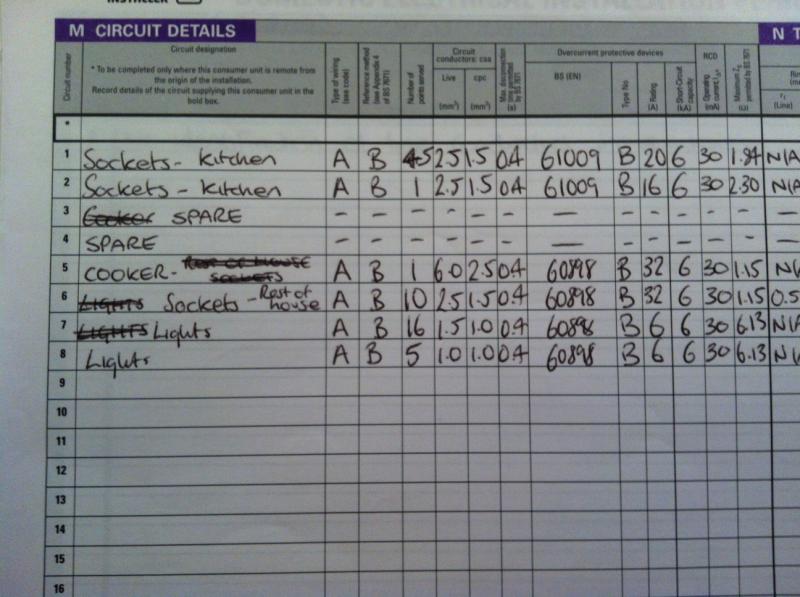 INSTALLER
M CIRCUIT DETAILS
N T
Circuit number
Circuit designation
* To be completed only where this consumer unit is remote from the origin of the installation.
Record details of the circuit supplying this consumer unit in the bold box.
Type of wiring (see code)
Reference method (see Appendix 4 of BS 7671)
Number of points served
Circuit conductors: csa
Live (mm²)
cpc (mm²)
Max. disconnection time permitted by BS 7671 (s)
Overcurrent protective devices
BS (EN)
Type No
Rating (A)
Short-Circuit capacity (kA)
RCD
Operating current, I∆n (mA)
Maximum Zs permitted by BS 7671 (Ω)
r1 (Line)
*
1 Sockets - kitchen A B 5 2.5 1.5 0.4 61009 B 20 6 30 1.84 N/A
2 Sockets - kitchen A B 1 2.5 1.5 0.4 61009 B 16 6 30 2.30 N/A
3 Cooker SPARE - - - - - - — - - - - - -
4 SPARE - - - - - - — - - - - - -
5 COOKER - REST OF HOUSE SOCKETS A B 1 6.0 2.5 0.4 60898 B 32 6 30 1.15 N/
6 LIGHTS Sockets - Rest of house A B 10 2.5 1.5 0.4 60898 B 32 6 30 1.15 0.5
7 LIGHTS Lights A B 16 1.5 1.0 0.4 60898 B 6 6 30 6.13 N/A
8 Lights A B 5 1.0 1.0 0.4 60898 B 6 6 30 6.13 N/A
9
10
11
12
13
14
15
16